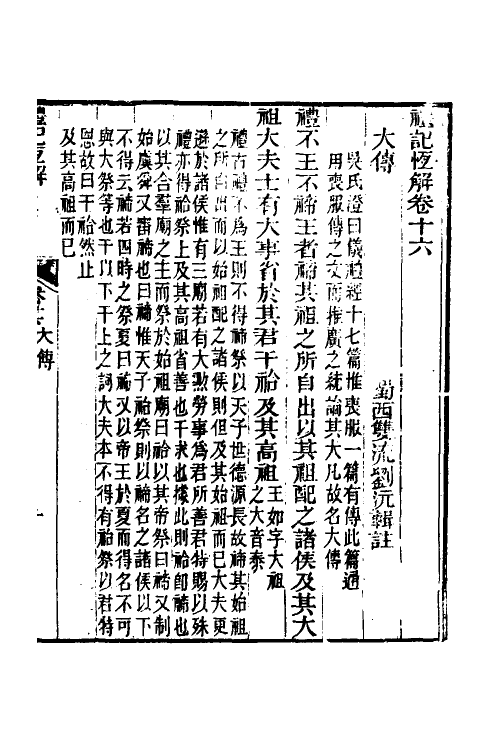 禮記恆解卷十六
蜀西雙流劉沅輯註
大傳
吳氏澄曰儀禮經十七篇惟喪服一篇有傳此篇通
用喪服傳之文而推廣之統論其大凡故名大傳
禮不王不禘王者禘其祖之所自出以其祖配之諸侯及其大
祖大夫士有大事省於其君干祫及其高祖王如字大祖
之大音泰
禮古禮不為王則不得禘祭以天子世德源長故禘其始祖
之所自出而以始祖配之諸侯則但及其大祖而已大夫更
遜於諸侯惟有三廟若有大勲勞事為君所善君特賜以殊
禮亦得祫祭上及其高祖省善也干求也據此則祫卽禘也
以其合羣廟之主而祭於始祖廟曰祫以其帝祭曰禘又制
始虞舜又審禘也曰禘惟天子祫祭則以禘名之諸侯以下
不得云禘若四時之祭夏曰禘又以帝王於夏而得名不可
與大祭等也干以下干上之詞大夫本不得有祫祭以君特
恩故曰干祫然止
及其高祖而已
禮記恆解
卷十六大傳
一